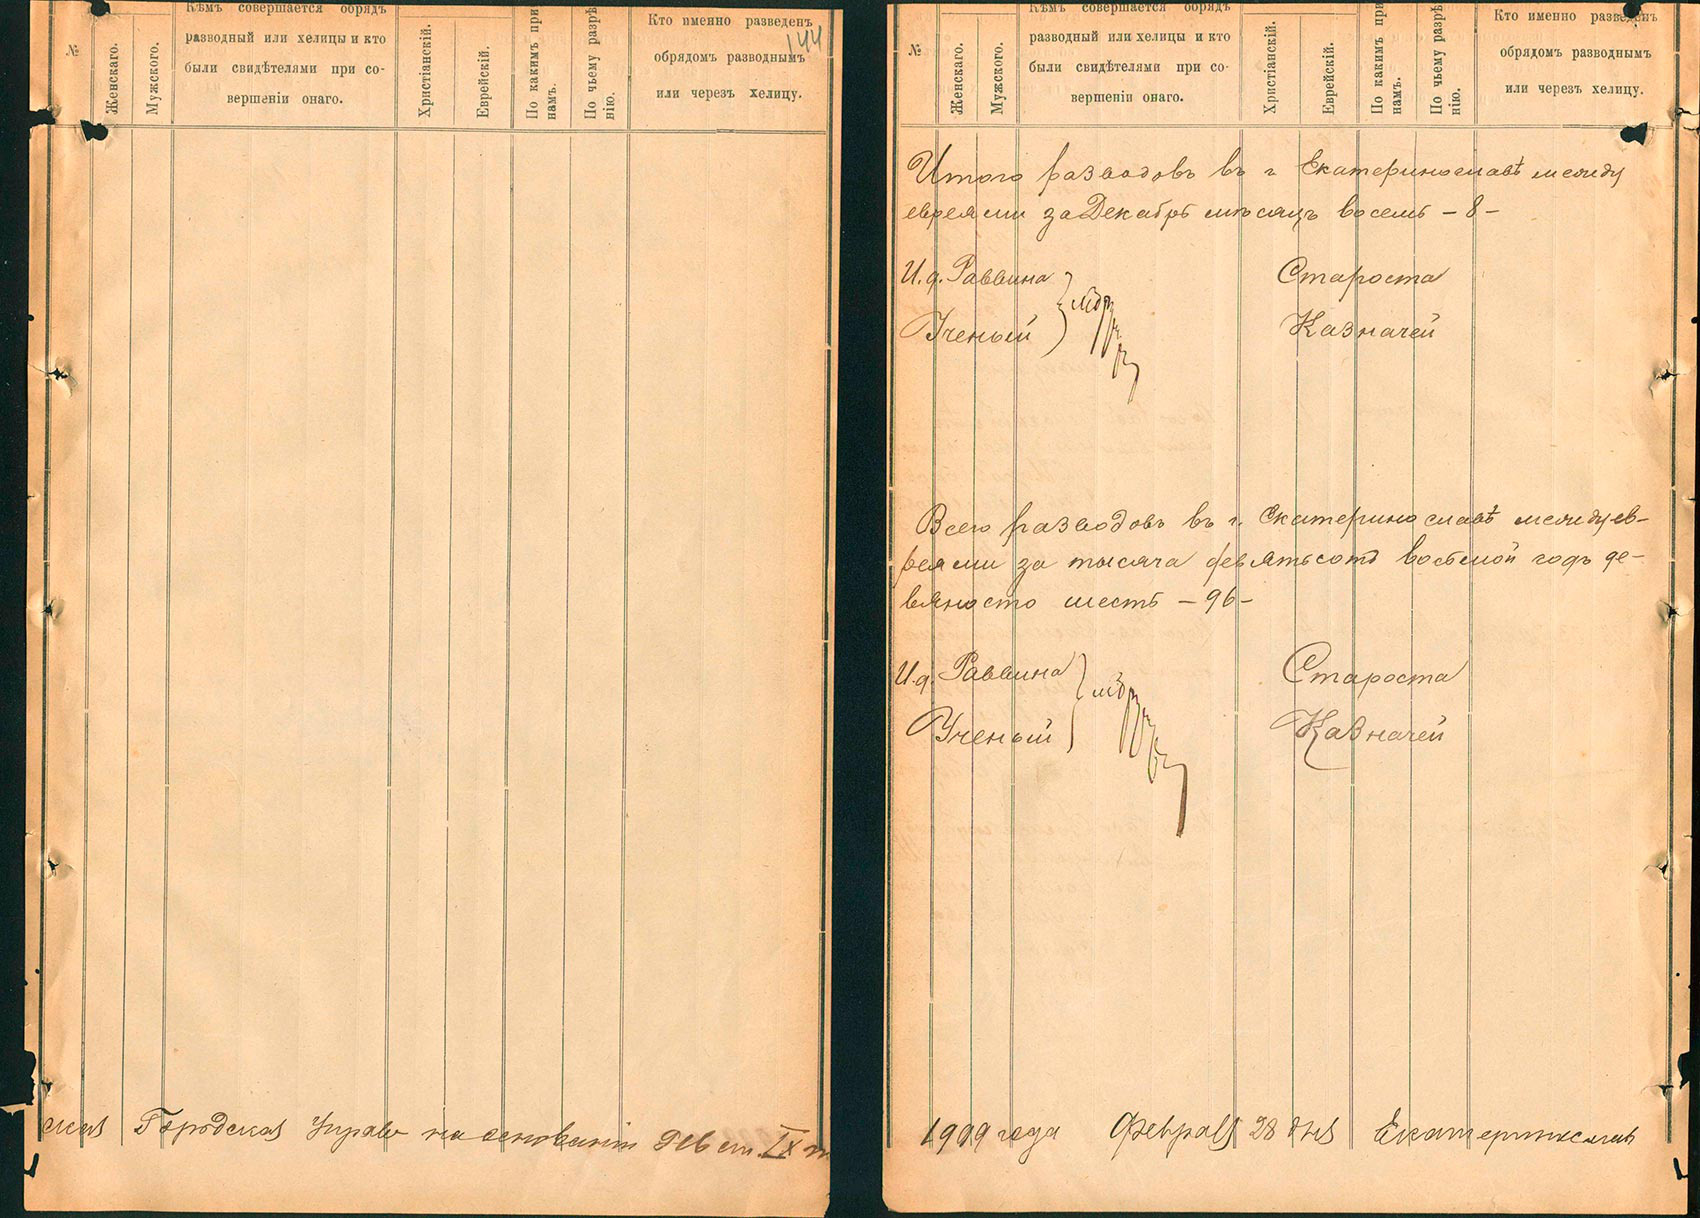 144
№
Женскаго.
Мужского.
Кѣмъ совершается обрядъ
разводный или хелицы и кто
были свидѣтелями при со-
вершеніи онаго.
Христіанскій.
Еврейскій.
По какимъ при
намъ.
По чьему разрѣ
нію.
Кто именно разведенъ
обрядомъ разводнымъ
или черезъ хелицу.
ская Городская Управа на основаніи 916 ст. IX т
№
Женскаго.
Мужского.
Кѣмъ совершается обрядъ
разводный или хелицы и кто
были свидѣтелями при со-
вершеніи онаго.
Христіанскій.
Еврейскій.
По какимъ при
намъ.
По чьему разрѣ
нію.
Кто именно разведенъ
обрядомъ разводнымъ
или черезъ хелицу.
Итого разводовъ въ г Екатеринославѣ между
евреями за Декабрь мѣсяцъ восемь – 8 –
И. д. Раввина Староста
Ученый Казначей
Всего разводовъ въ г. Екатеринославѣ между ев-
реями за тысяча девятьсотъ восьмой годъ де-
вяносто шесть – 96 –
И. д. Раввина Староста
Ученый Казначей
1909 года Февраля 28 дня Екатеринослав